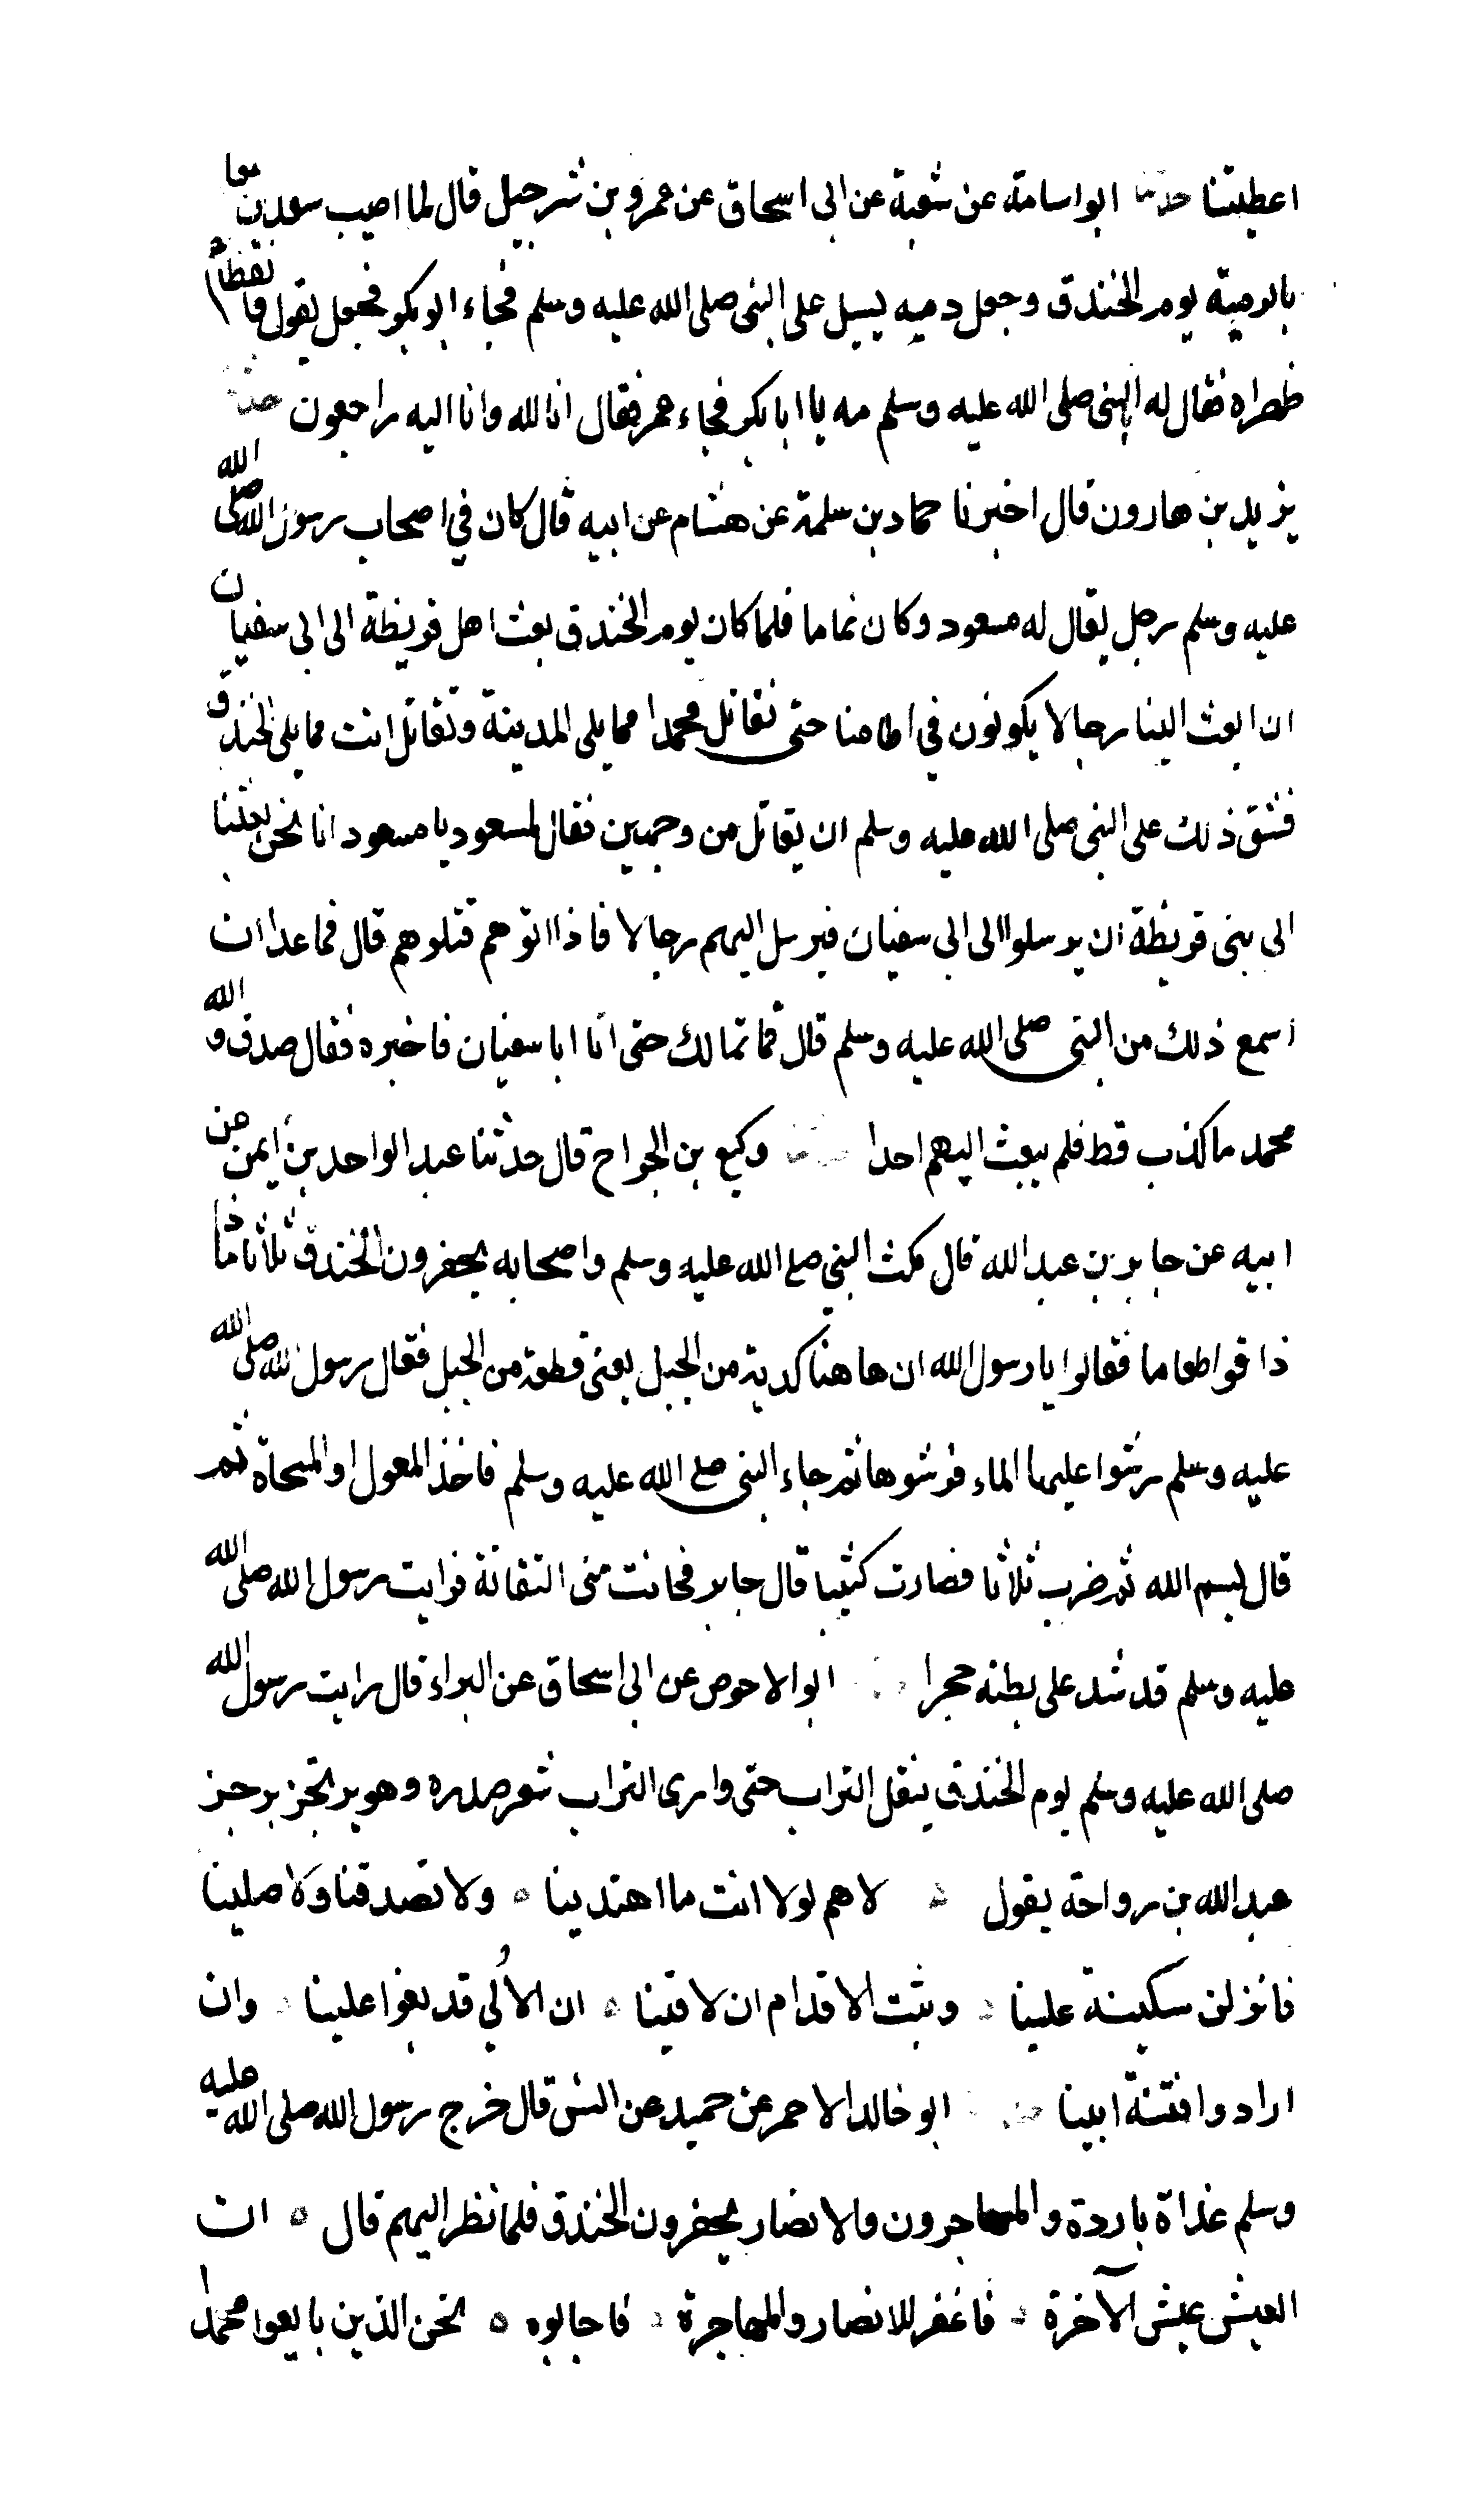 اعطيتنا حدثنا ابو اسامة عن شعبة عن ابى اسحاق عن عمرو بن شرحبيل قال لما اصيب سعد بن معا
بالرمية يوم الخندق وجعل دميه يسيل على النبى صلى الله عليه وسلم فجاء ابو بكر فجعل يقول وا نقطا
ظهراه فقال له النبى صلى الله عليه وسلم مه يا ابا بكر فجاء عمر فقال انا لله وانا اليه راجعون حدثنا
يزيد بن هارون قال اخبرنا حماد بن سلمة عن هشام عن ابيه قال كان في اصحاب رسول الله صلى الله
عليه وسلم رجل يقال له مسعود وكان نماما فلما كان يوم الخندق بعث اهل قريظة الى ابى سفيان
ان ابعث الينا رجالا يكونون في اطامنا حتى نقاتل محمدا مما يلى المدينة وتقاتل انت مما يلى الخندق
فشق ذلك على النبى صلى الله عليه وسلم ان يقاتل من وجهين فقال لمسعود يا مسعود انا نحن بعثنا
الى بنى قريظة ان يرسلوا الى ابى سفيان فيرسل اليهم رجالا فاذا اتوهم قتلوهم قال فما عدا ان
سمع ذلك من النبى صلى الله عليه وسلم قال فما تمالك حتى اتا ابا سفيان فاخبره فقال صدق والله
محمد ما كذب قط فلم يبعث اليهم احدا وكيع بن الجراح قال حدثنا عبد الواحد بن ايمن عن
ابيه عن جابر بن عبد الله قال مكث النبى صلى الله عليه وسلم واصحابه يحفرون الخندق ثلاثا ما
ذاقوا طعاما فقالوا يا رسول الله ان هاهنا كدية من الجبل يعنى قطعة من الجبل فقال رسول الله صلى الله
عليه وسلم رشوا عليها الماء فرشوها ثم جاء النبى صلى الله عليه وسلم فاخذ المعول او المسحاة ثم
قال بسم الله ثم ضرب ثلاثا فصارت كثيبا قال جابر فحانت منى التقاتة فرايت رسول الله صلى الله
عليه وسلم قد شد على بطنه حجرا ابو الاحوص عن ابى اسحاق عن البراء قال رايت رسول الله
صلى الله عليه وسلم يوم الخندق ينقل التراب حتى وارى التراب شعر صدره وهو يرتجز برجز
عبد الله بن رواحة يقول لاهم لولا انت ما اهتدينا ولا تصدقنا ولا صلينا
فانزلن سكينة علينا وثبت الاقدام ان لاقينا ان الاُلي قد بغوا علينا وان
ارادوا فتنة ابينا ابو خالد الاحمر عن حميد عن انس قال خرج رسول الله صلى الله عليه
وسلم غداة باردة والمهاجرون والانصار يحفرون الخندق فلما نظر اليهم قال ان
العيش عيش الآخرة فاغفر للانصار والمهاجرة فاجابوه نحن الذين بايعوا محمدا